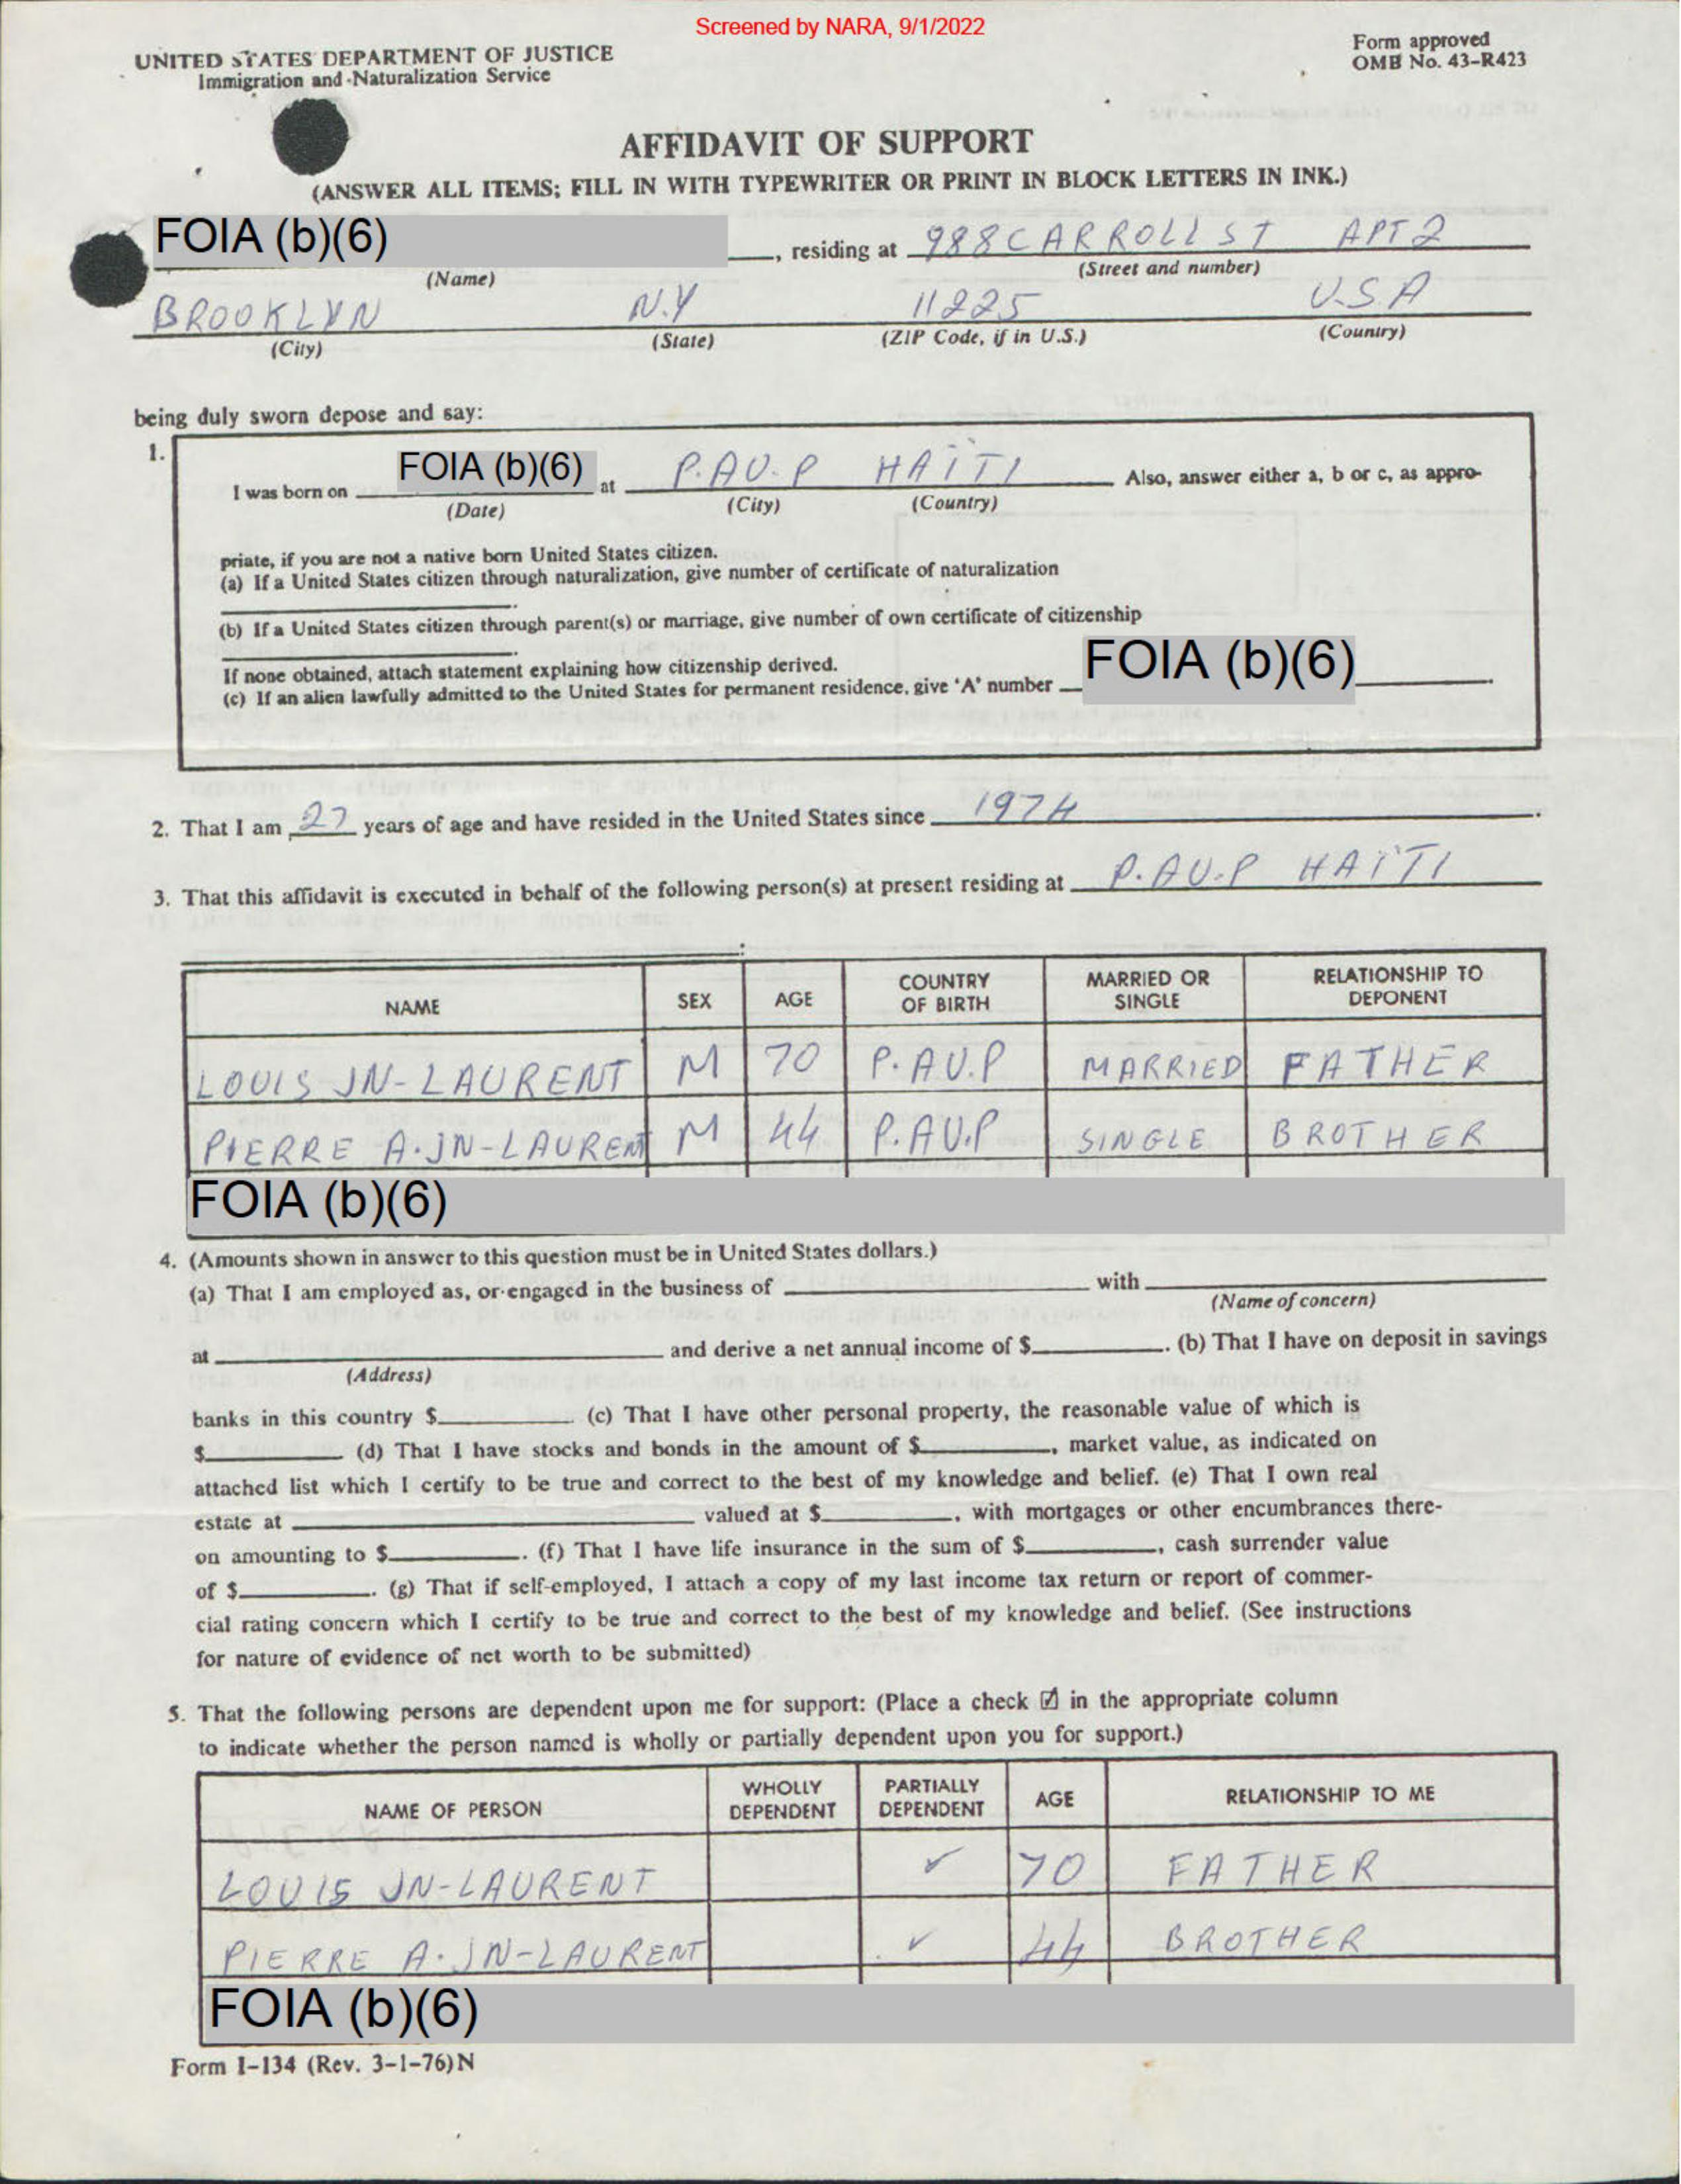 Screened by NARA, 9/1/2022
UNITED STATES DEPARTMENT OF JUSTICE
Immigration and Naturalization Service
Form approved
OMB No. 43-R423
AFFIDAVIT OF SUPPORT
(ANSWER ALL ITEMS; FILL IN WITH TYPEWRITER OR PRINT IN BLOCK LETTERS IN INK.)
FOIA (b)(6) , residing at 988 CARROLL ST APT 2
(Name) (Street and number)
BROOKLYN N.Y 11225 U.S.A
(City) (State) (ZIP Code, if in U.S.) (Country)
being duly sworn depose and say:
1.
I was born on FOIA (b)(6) at P.AU.P HAITI Also, answer either a, b or c, as appro-
(Date) (City) (Country)
priate, if you are not a native born United States citizen.
(a) If a United States citizen through naturalization, give number of certificate of naturalization
(b) If a United States citizen through parent(s) or marriage, give number of own certificate of citizenship
If none obtained, attach statement explaining how citizenship derived.
(c) If an alien lawfully admitted to the United States for permanent residence, give 'A' number FOIA (b)(6).
2. That I am 27 years of age and have resided in the United States since 1974.
3. That this affidavit is executed in behalf of the following person(s) at present residing at P.AU.P HAITI
NAME SEX AGE COUNTRY OF BIRTH MARRIED OR SINGLE RELATIONSHIP TO DEPONENT
LOUIS JN-LAURENT M 70 P.AU.P MARRIED FATHER
PIERRE A.JN-LAURENT M 44 P.AU.P SINGLE BROTHER
FOIA (b)(6)
4. (Amounts shown in answer to this question must be in United States dollars.)
(a) That I am employed as, or engaged in the business of with
(Name of concern)
at and derive a net annual income of $ . (b) That I have on deposit in savings
(Address)
banks in this country $ (c) That I have other personal property, the reasonable value of which is
$ (d) That I have stocks and bonds in the amount of $ , market value, as indicated on
attached list which I certify to be true and correct to the best of my knowledge and belief. (e) That I own real
estate at valued at $ , with mortgages or other encumbrances there-
on amounting to $ . (f) That I have life insurance in the sum of $ , cash surrender value
of $ . (g) That if self-employed, I attach a copy of my last income tax return or report of commer-
cial rating concern which I certify to be true and correct to the best of my knowledge and belief. (See instructions
for nature of evidence of net worth to be submitted)
5. That the following persons are dependent upon me for support: (Place a check ☑ in the appropriate column
to indicate whether the person named is wholly or partially dependent upon you for support.)
NAME OF PERSON WHOLLY DEPENDENT PARTIALLY DEPENDENT AGE RELATIONSHIP TO ME
LOUIS JN-LAURENT ✓ 70 FATHER
PIERRE A.JN-LAURENT ✓ 44 BROTHER
FOIA (b)(6)
Form I-134 (Rev. 3-1-76)N